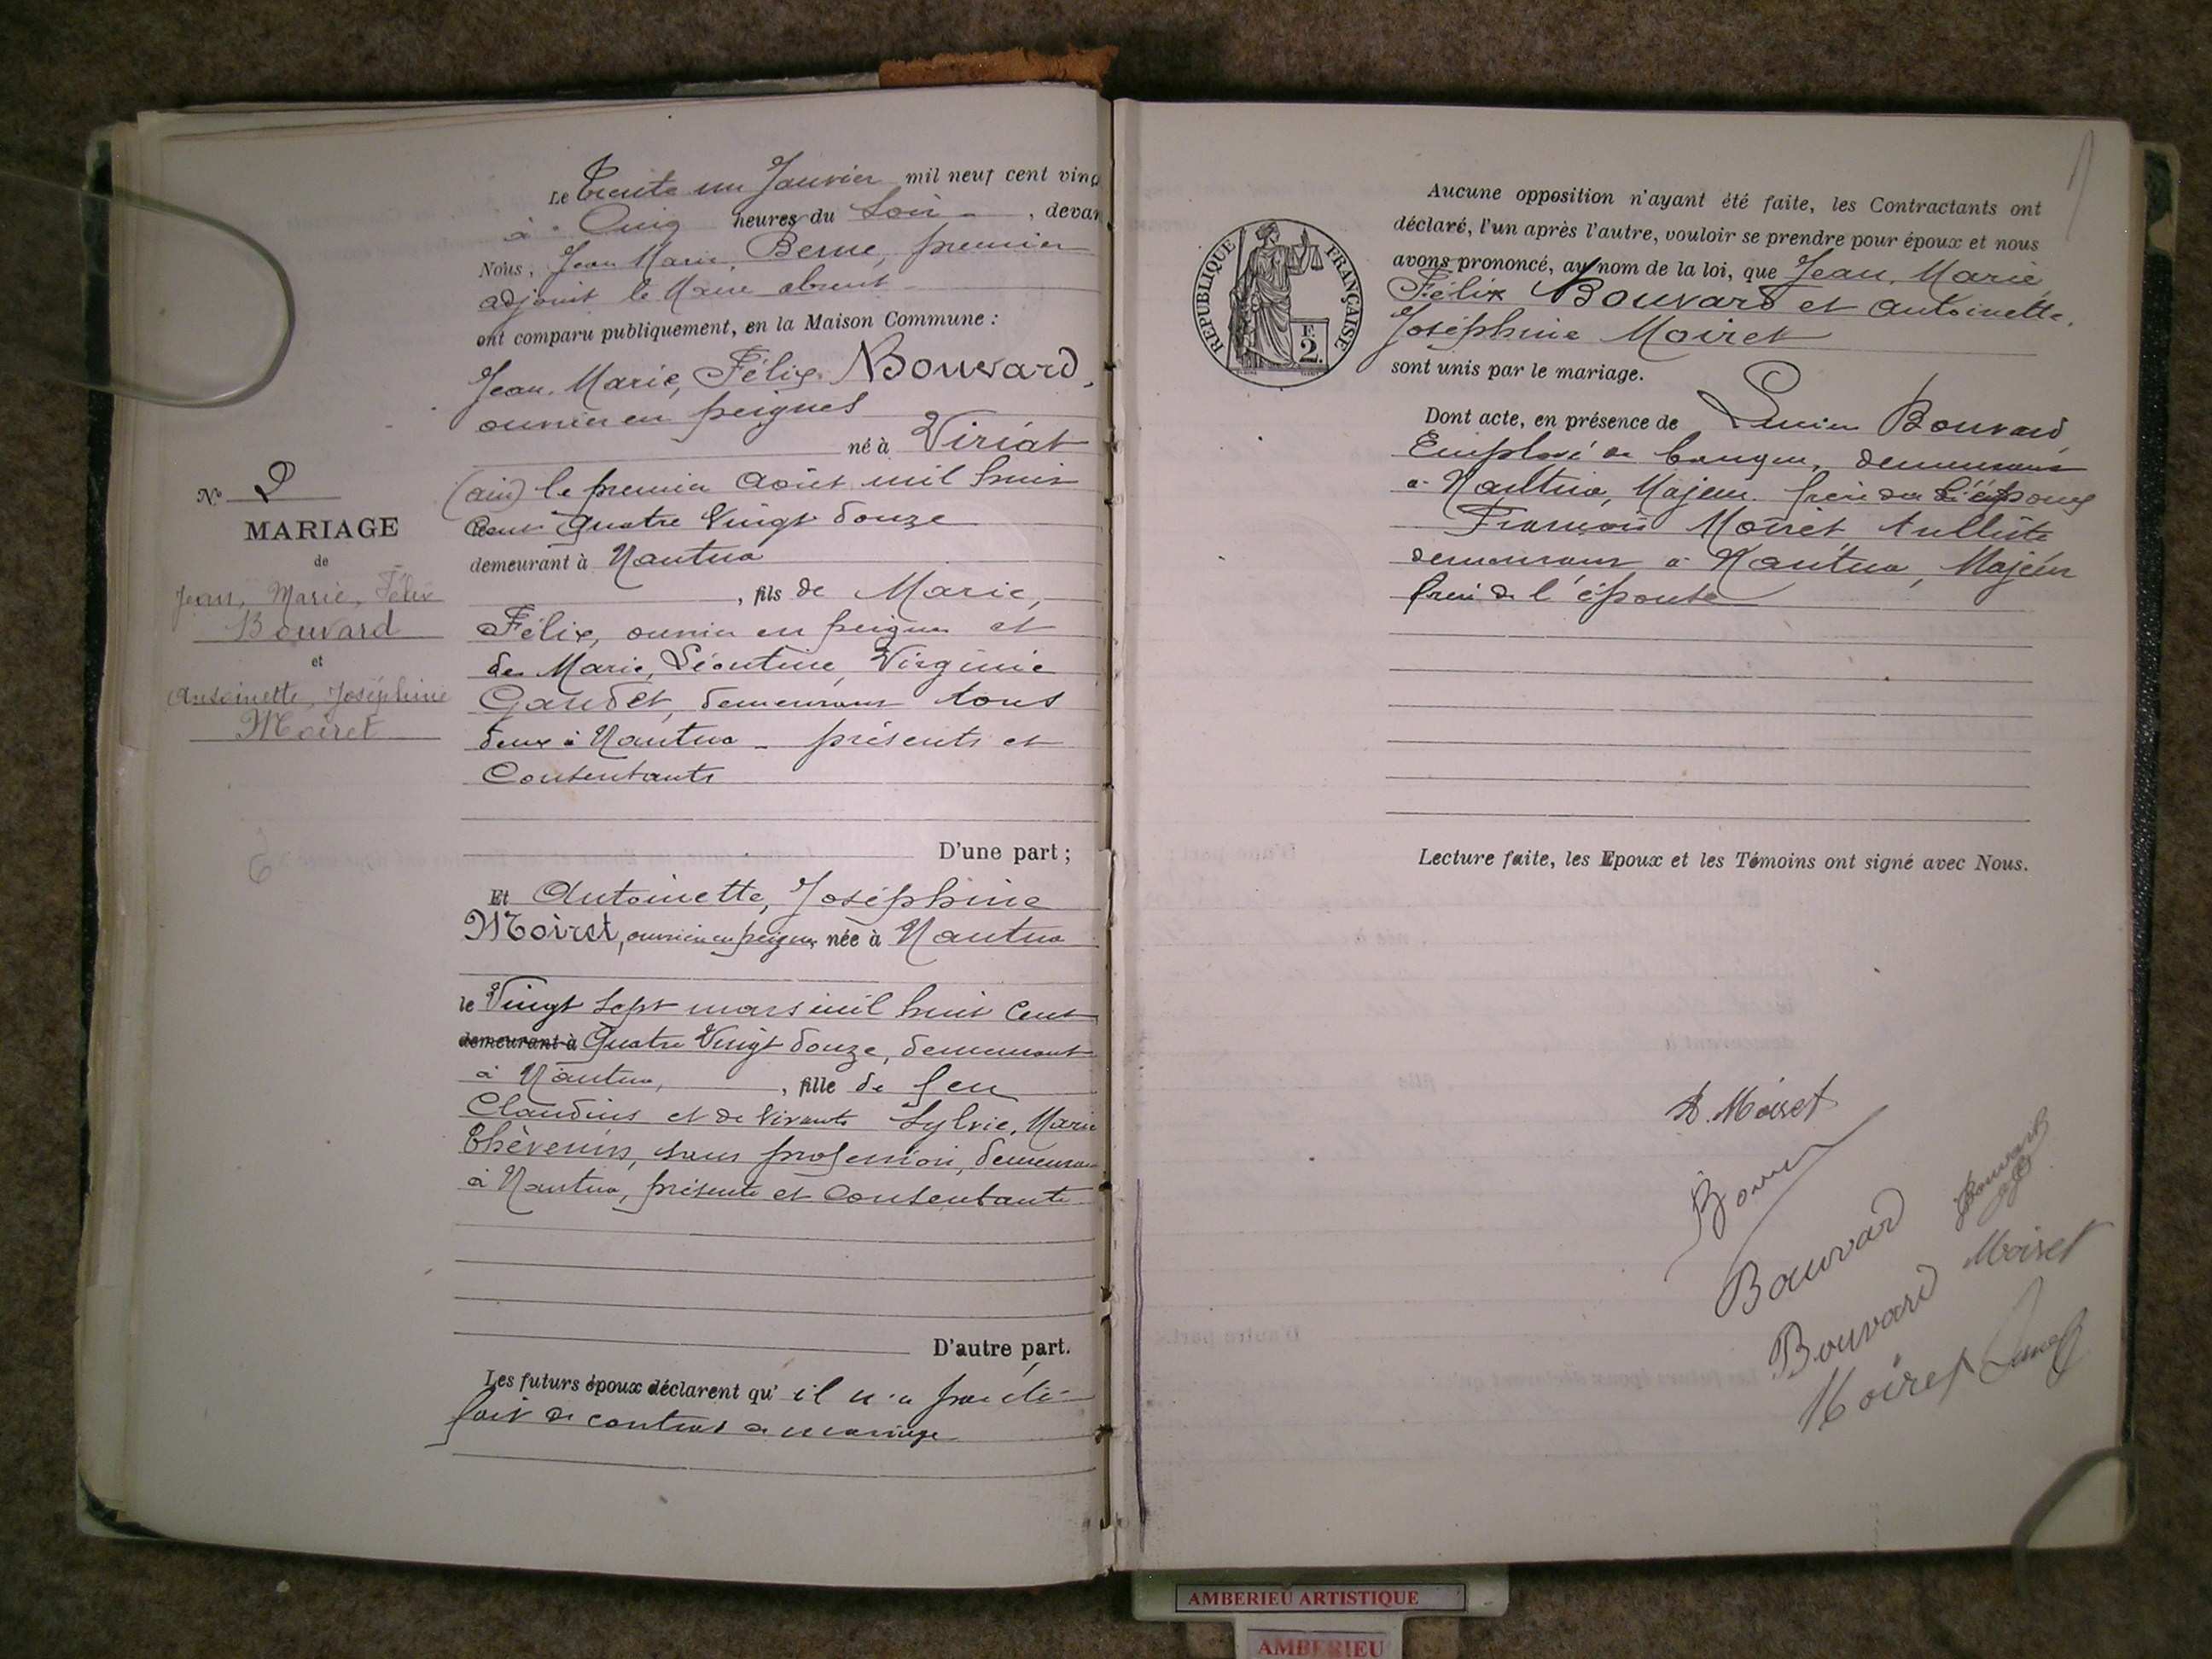 Le Trente un Janvier mil neuf cent ving
à Cinq heures du Soir, devan
Nous, Jean Marie, Berne, premier
adjoint le Maire absent
ont comparu publiquement, en la Maison Commune :
Jean, Marie, Félix Bouvard,
ouvrier en peignes
né à Viriat
(ain) le premier Août mil huit
Cent Quatre Vingt douze
demeurant à Nantua
, fils de Marie,
Félix, ouvrier en peignes et
de Marie, Léontine, Virginie
Gaudet, demeurant tous
deux à Nantua - présents et
Consentants
D'une part ;
Et Antoinette, Joséphine
Moiret, ouvrière en peignes née à Nantua
le Vingt Sept mars mil huit Cent
demeurant à Quatre Vingt douze, demeurant
à Nantua, , fille de feu
Claudius et de Vivante Sylvie, Marie
Thèvenin, sans profession, demeuran
à Nantua, présente et Consentante
D'autre part.
Les futurs époux déclarent qu' il n'a pas été
fait de contrat de mariage
N° 2
MARIAGE
de
Jean, Marie, Félix
Bouvard
et
Antoinette, Joséphine
Moiret
6
RÉPUBLIQUE FRANÇAISE
E
2
Aucune opposition n'ayant été faite, les Contractants ont
déclaré, l'un après l'autre, vouloir se prendre pour époux et nous
avons prononcé, au nom de la loi, que Jean, Marie,
Félix Bouvard et Antoinette,
Joséphine Moiret
sont unis par le mariage.
Dont acte, en présence de Lucien Bouvard
Employé de banque, demeurant
à Nantua, Majeur frère de l'époux
François Moiret, tulliste
demeurant à Nantua, Majeur
frère de l'épouse
Lecture faite, les Epoux et les Témoins ont signé avec Nous.
A. Moiret
Bouvard
Bouvard
Bouvard
Moiret
Moiret
AMBERIEU ARTISTIQUE
AMBERIEU